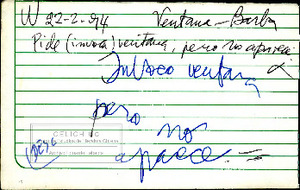 W 22-2-94 Ventana - Barba
Pide (invoca) ventana, pero no aparece
ventana
pero no
aparece =
CELIC
DESC